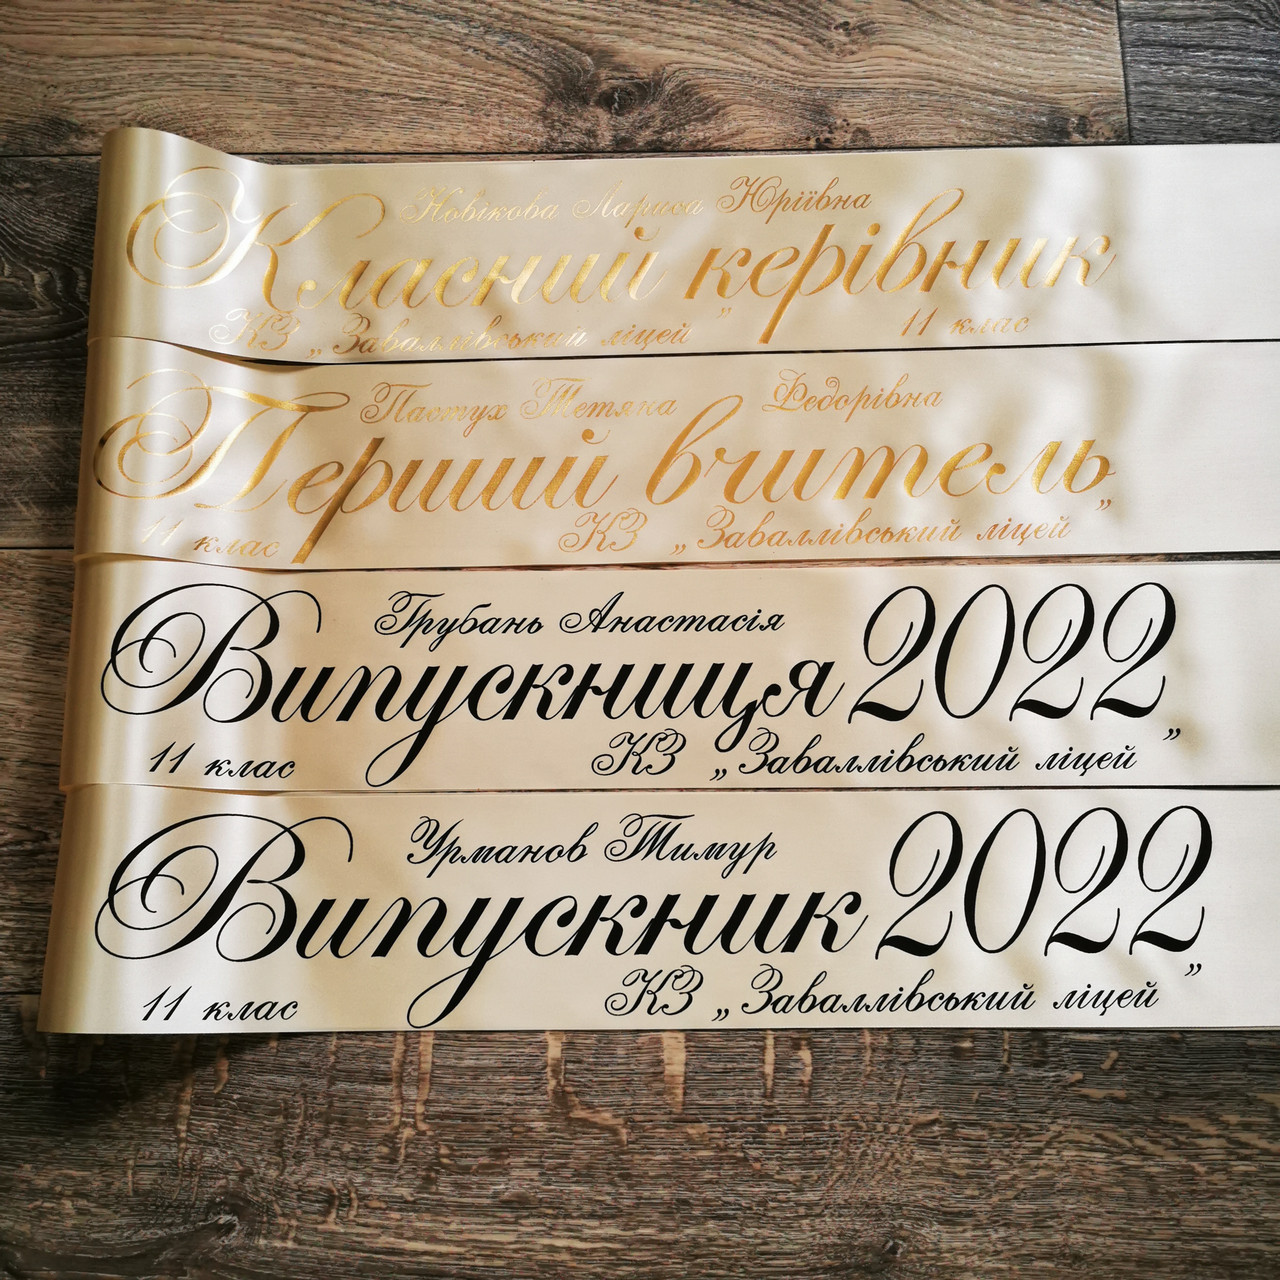 Новікова Лариса Юріївна
Класний керівник
КЗ „Заваллівський ліцей” 11 клас
Пастух Тетяна Федорівна
Перший вчитель
11 клас КЗ „Заваллівський ліцей”
Грубань Анастасія
Випускниця 2022
11 клас КЗ „Заваллівський ліцей”
Урманов Тимур
Випускник 2022
11 клас КЗ „Заваллівський ліцей”